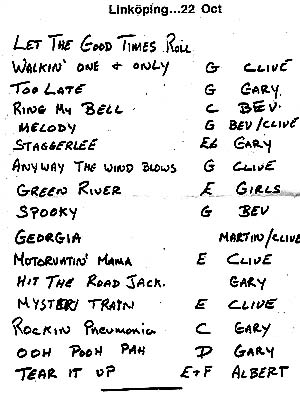 Linköping...22 Oct
LET THE GOOD TIMES ROLL
WALKIN' ONE + ONLY G CLIVE
TOO LATE G GARY
RING MY BELL C BEV.
MELODY G BEV/CLIVE
STAGGERLEE Eb GARY
ANYWAY THE WIND BLOWS G CLIVE
GREEN RIVER E GIRLS
SPOOKY G BEV
GEORGIA MARTIN/CLIVE
MOTORVATIN' MAMA E CLIVE
HIT THE ROAD JACK. GARY
MYSTERY TRAIN E CLIVE
ROCKIN PNEUMONIA C GARY
OOH POOH PAH D GARY
TEAR IT UP E+F ALBERT